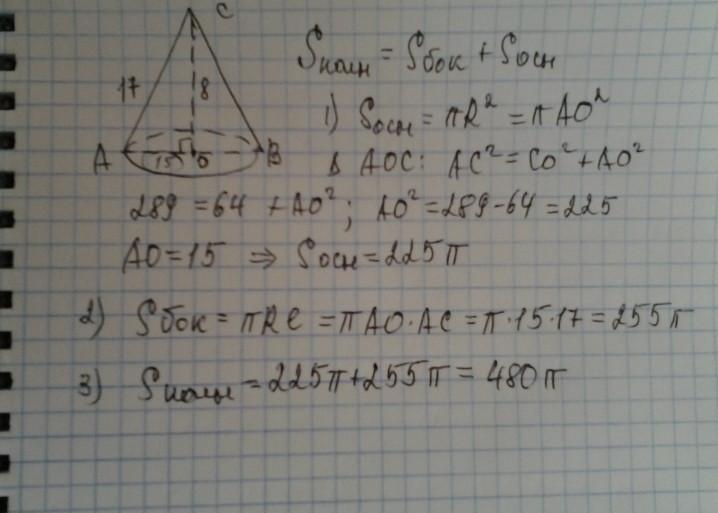 C
17
8
A
15
O
B
Sполн = Sбок + Sосн
1) Sосн = πR² = πAO²
Δ AOC: AC² = CO² + AO²
289 = 64 + AO²; AO² = 289 - 64 = 225
AO = 15 ⇒ Sосн = 225π
2) Sбок = πRℓ = πAO·AC = π·15·17 = 255π
3) Sполн = 225π + 255π = 480π